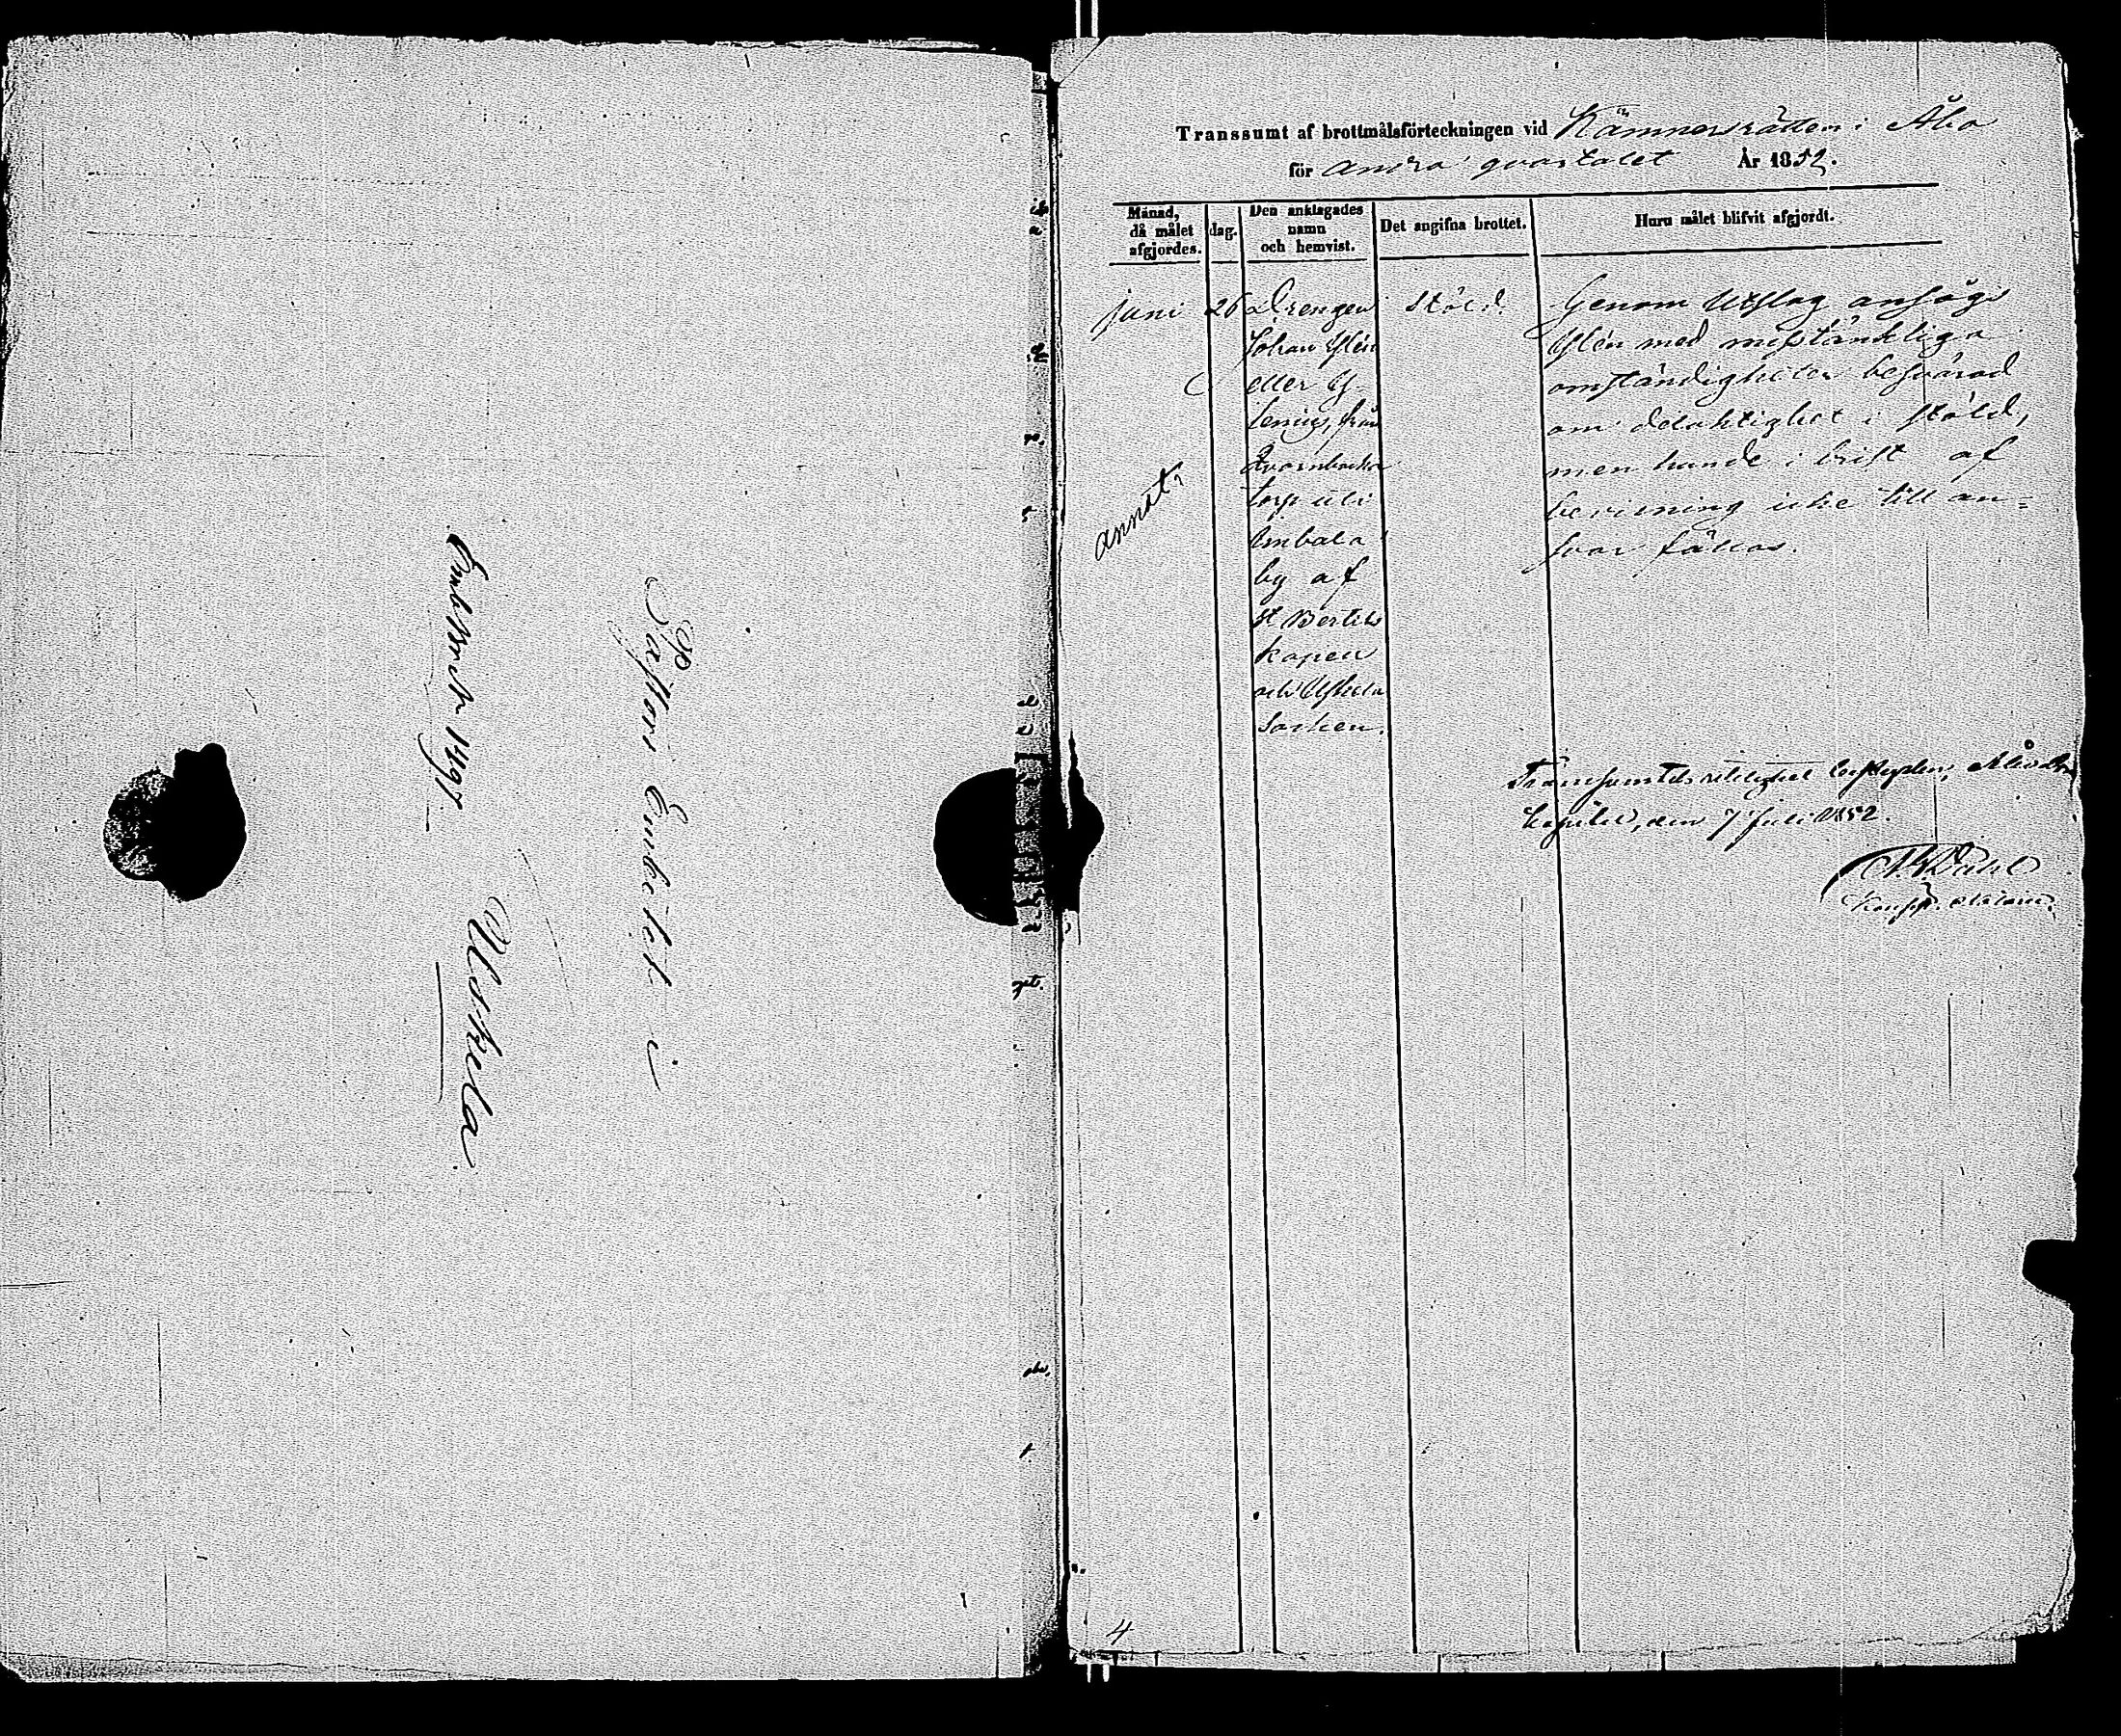 Pastors Embetet i
Uskela
Transsumt af brottmålsförteckningen vid Kämnersrätten i Åbo
för andra qvartalet År 1852.
Månad, då målet afgjordes.
dag.
Den anklagades namn och hemvist.
Det angifna brottet.
Huru målet blifvit afgjordt.
Juni
26
Drengen
Johan
eller
från
Qvarnbacka
torp uti
by af
St Bertils
kapell
och Uskela
Socken.
stöld.
annot.
Genom Utslag ansågs
med misstänkliga
omständigheter besvärad
om delaktighet i stöld,
men kunde i brist af
bevisning icke till an=
svar fällas.
Transsumtets riktighet Åbo
Kapitel, den 7 Juli 1852.
4